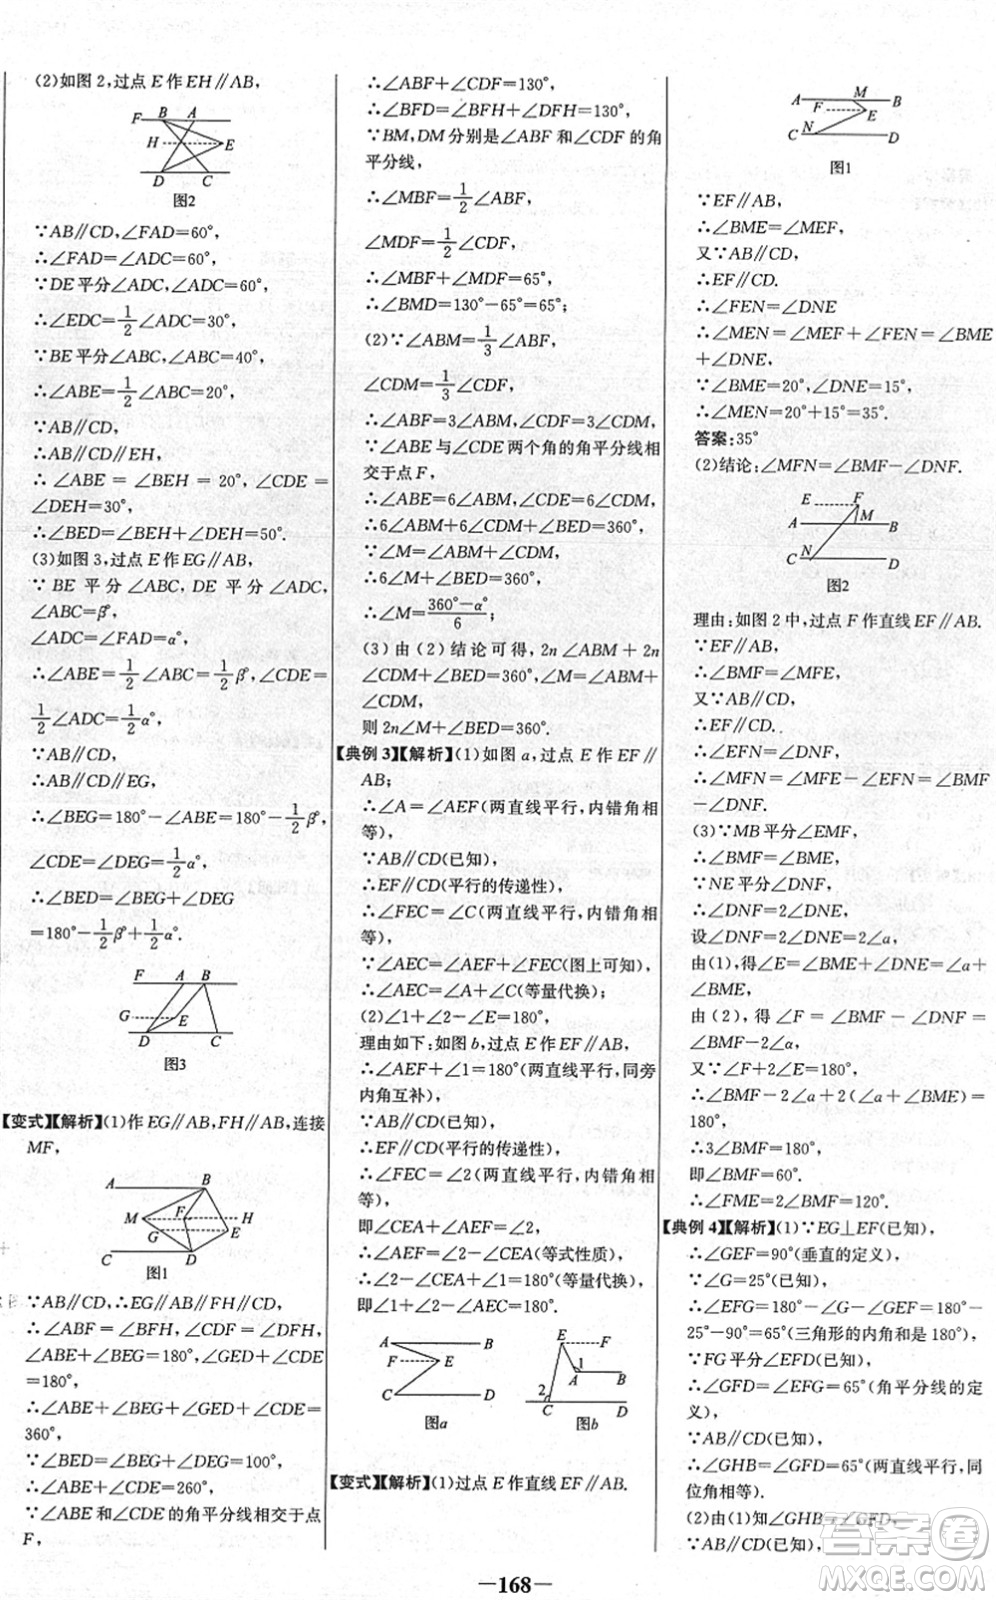 (2)如图 2,过点 E 作 EH∥AB,
F B A
H E
D C
图2
∵AB∥CD,∠FAD=60°,
∴∠FAD=∠ADC=60°,
∵DE 平分∠ADC,∠ADC=60°,
∴∠EDC=1/2∠ADC=30°,
∵BE 平分∠ABC,∠ABC=40°,
∴∠ABE=1/2∠ABC=20°,
∵AB∥CD,
∴AB∥CD∥EH,
∴∠ABE=∠BEH=20°,∠CDE=
∠DEH=30°,
∴∠BED=∠BEH+∠DEH=50°.
(3)如图 3,过点 E 作 EG∥AB,
∵ BE 平分∠ABC,DE 平分∠ADC,
∠ABC=β°,
∠ADC=∠FAD=α°,
∴∠ABE=1/2∠ABC=1/2β°,∠CDE=
1/2∠ADC=1/2α°,
∵AB∥CD,
∴AB∥CD∥EG,
∴∠BEG=180°-∠ABE=180°-1/2β°,
∠CDE=∠DEG=1/2α°,
∴∠BED=∠BEG+∠DEG
=180°-1/2β°+1/2α°.
F A B
G E
D C
图3
【变式】【解析】(1)作 EG∥AB,FH∥AB,连接
MF,
A B
M F H
G E
C D
图1
∵AB∥CD,∴EG∥AB∥FH∥CD,
∴∠ABF=∠BFH,∠CDF=∠DFH,
∠ABE+∠BEG=180°,∠GED+∠CDE
=180°,
∴∠ABE+∠BEG+∠GED+∠CDE=
360°,
∵∠BED=∠BEG+∠DEG=100°,
∴∠ABE+∠CDE=260°,
∵∠ABE 和∠CDE 的角平分线相交于点
F,
∴∠ABF+∠CDF=130°,
∴∠BFD=∠BFH+∠DFH=130°,
∵BM,DM 分别是∠ABF 和∠CDF 的角
平分线,
∴∠MBF=1/2∠ABF,
∠MDF=1/2∠CDF,
∴∠MBF+∠MDF=65°,
∴∠BMD=130°-65°=65°;
(2)∵∠ABM=1/3∠ABF,
∠CDM=1/3∠CDF,
∴∠ABF=3∠ABM,∠CDF=3∠CDM,
∵∠ABE 与∠CDE 两个角的角平分线相
交于点 F,
∴∠ABE=6∠ABM,∠CDE=6∠CDM,
∴6∠ABM+6∠CDM+∠BED=360°,
∵∠M=∠ABM+∠CDM,
∴6∠M+∠BED=360°,
∴∠M=(360°-α°)/6;
(3)由(2)结论可得,2n∠ABM+2n
∠CDM+∠BED=360°,∠M=∠ABM+
∠CDM,
则 2n∠M+∠BED=360°.
【典例 3】【解析】(1)如图 a,过点 E 作 EF∥
AB;
∴∠A=∠AEF(两直线平行,内错角相
等),
∵AB∥CD(已知),
∴EF∥CD(平行的传递性),
∴∠FEC=∠C(两直线平行,内错角相
等),
∵∠AEC=∠AEF+∠FEC(图上可知),
∴∠AEC=∠A+∠C(等量代换);
(2)∠1+∠2-∠E=180°,
理由如下:如图 b,过点 E 作 EF∥AB,
∴∠AEF+∠1=180°(两直线平行,同旁
内角互补),
∵AB∥CD(已知),
∴EF∥CD(平行的传递性),
∴∠FEC=∠2(两直线平行,内错角相
等),
即∠CEA+∠AEF=∠2,
∴∠AEF=∠2-∠CEA(等式性质),
∴∠2-∠CEA+∠1=180°(等量代换),
即∠1+∠2-∠AEC=180°.
A B
F E
C D
图a
E F
1
A B
2
C D
图b
【变式】【解析】(1)过点 E 作直线 EF∥AB.
A M B
F E
C N D
图1
∵EF∥AB,
∴∠BME=∠MEF,
又∵AB∥CD,
∴EF∥CD.
∴∠FEN=∠DNE
∴∠MEN=∠MEF+∠FEN=∠BME
+∠DNE,
∵∠BME=20°,∠DNE=15°,
∴∠MEN=20°+15°=35°.
答案:35°
(2)结论:∠MFN=∠BMF-∠DNF.
E F
A M B
C N D
图2
理由:如图 2 中,过点 F 作直线 EF∥AB.
∵EF∥AB,
∴∠BMF=∠MFE,
又∵AB∥CD,
∴EF∥CD.
∴∠EFN=∠DNF,
∴∠MFN=∠MFE-∠EFN=∠BMF
-∠DNF.
(3)∵MB 平分∠EMF,
∴∠BMF=∠BME,
∵NE 平分∠DNF,
∴∠DNF=2∠DNE,
设∠DNF=2∠DNE=2∠α,
由(1),得∠E=∠BME+∠DNE=∠α+
∠BME,
由(2),得∠F=∠BMF-∠DNF=
∠BMF-2∠α,
又∵∠F+2∠E=180°,
∴∠BMF-2∠α+2(∠α+∠BME)=
180°,
∴3∠BMF=180°,
即∠BMF=60°.
∴∠FME=2∠BMF=120°.
【典例 4】【解析】(1)∵EG⊥EF(已知),
∴∠GEF=90°(垂直的定义),
∵∠G=25°(已知),
∴∠EFG=180°-∠G-∠GEF=180°-
25°-90°=65°(三角形的内角和是 180°),
∵FG 平分∠EFD(已知),
∴∠GFD=∠EFG=65°(角平分线的定
义),
∵AB∥CD(已知),
∴∠GHB=∠GFD=65°(两直线平行,同
位角相等).
(2)由(1)知∠GHB=∠GFD,
∵AB∥CD(已知),
—168—
答案卷
MXQE.COM